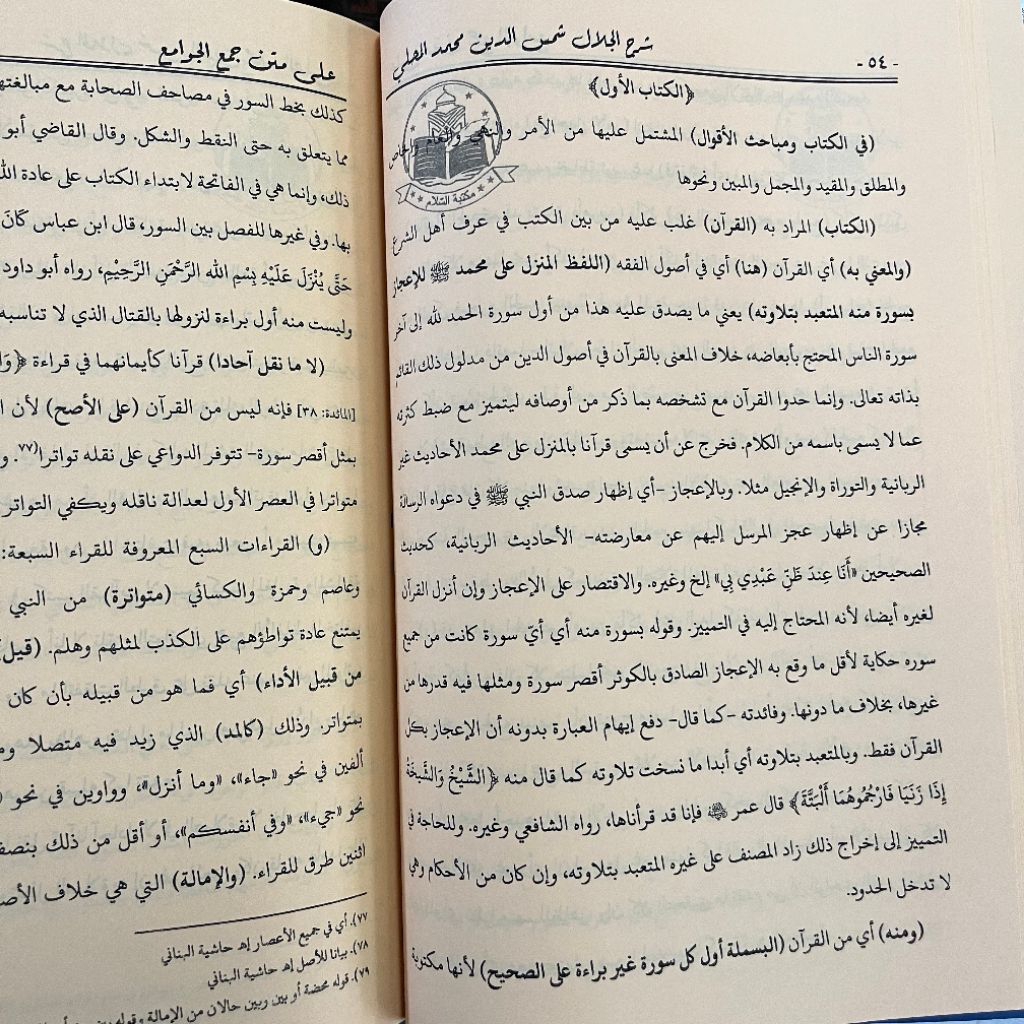 - ٥٤ - شرح الجلال شمس الدين محمد المحلي
﴿الكتاب الأول﴾
(في الكتاب ومباحث الأقوال) المشتمل عليها من الأمر والنهي والعام والخاص
والمطلق والمقيد والمجمل والمبين ونحوها
(الكتاب) المراد به (القرآن) غلب عليه من بين الكتب في عرف أهل الشرع
(والمعني به) أي القرآن (هنا) أي في أصول الفقه (اللفظ المنزل على محمد ﷺ للإعجاز
بسورة منه المتعبد بتلاوته) يعني ما يصدق عليه هذا من أول سورة الحمد لله إلى آخر
سورة الناس المحتج بأبعاضه، خلاف المعنى بالقرآن في أصول الدين من مدلول ذلك القائم
بذاته تعالى. وإنما حدوا القرآن مع تشخصه بما ذكر من أوصافه ليتميز مع ضبط كثرته
عما لا يسمى باسمه من الكلام. فخرج عن أن يسمى قرآنا بالمنزل على محمد الأحاديث غير
الربانية والتوراة والإنجيل مثلا. وبالإعجاز -أي إظهار صدق النبي ﷺ في دعواه الرسالة
مجازا عن إظهار عجز المرسل إليهم عن معارضته- الأحاديث الربانية، كحديث
الصحيحين «أَنَا عِندَ ظَنِّ عَبْدِي بِي» إلخ وغيره. والاقتصار على الإعجاز وإن أنزل القرآن
لغيره أيضا، لأنه المحتاج إليه في التمييز. وقوله بسورة منه أي أيّ سورة كانت من جميع
سوره حكاية لأقل ما وقع به الإعجاز الصادق بالكوثر أقصر سورة ومثلها فيه قدرها من
غيرها، بخلاف ما دونها. وفائدته -كما قال- دفع إيهام العبارة بدونه أن الإعجاز بكل
القرآن فقط. وبالمتعبد بتلاوته أي أبدا ما نسخت تلاوته كما قال منه ﴿الشَّيْخُ وَالشَّيخَةُ
إِذَا زَنَيَا فَارْجُمُوهُمَا أَلْبَتَّةَ﴾ قال عمر ﵁ فإنا قد قرأناها، رواه الشافعي وغيره. وللحاجة في
التمييز إلى إخراج ذلك زاد المصنف على غيره المتعبد بتلاوته، وإن كان من الأحكام وهي
لا تدخل الحدود.
(ومنه) أي من القرآن (البسملة أول كل سورة غير براءة على الصحيح) لأنها مكتوبة
مكتبة السلام
على متن جمع الجوامع
كذلك بخط السور في مصاحف الصحابة مع مبالغتهم
مما يتعلق به حتى النقط والشكل. وقال القاضي أبو
ذلك، وإنما هي في الفاتحة لابتداء الكتاب على عادة الله
بها. وفي غيرها للفصل بين السور، قال ابن عباس كَانَ
حَتَّى يُنْزَلَ عَلَيْهِ بِسْمِ الله الرَّحْمَنِ الرَّحِيْمِ، رواه أبو داود
وليست منه أول براءة لنزولها بالقتال الذي لا تناسبه
(لا ما نقل آحادا) قرآنا كأيمانهما في قراءة ﴿
[المائدة: ٣٨] فإنه ليس من القرآن (على الأصح) لأن
بمثل أقصر سورة- تتوفر الدواعي على نقله تواترا(٧٧.
متواترا في العصر الأول لعدالة ناقله ويكفي التواتر
(و) القراءات السبع المعروفة للقراء السبعة:
وعاصم وحمزة والكسائي (متواترة) من النبي
يمتنع عادة تواطؤهم على الكذب لمثلهم وهلم. (قيل)
من قبيل الأداء) أي فما هو من قبيله بأن كان
بمتواتر. وذلك (كالمد) الذي زيد فيه متصلا
ألفين في نحو «جاء»، «وما أنزل»، وواوين في نحو
نحو «جيء»، «وفي أنفسكم»، أو أقل من ذلك بنصف
اثنين طرق للقراء. (والإمالة) التي هي خلاف
٧٧). أي في جميع الأعصار إهـ حاشية البناني
٧٨). بيانا للأصل إهـ حاشية البناني
٧٩). قوله محضة أو بين وبين حالان من الإمالة وقوله